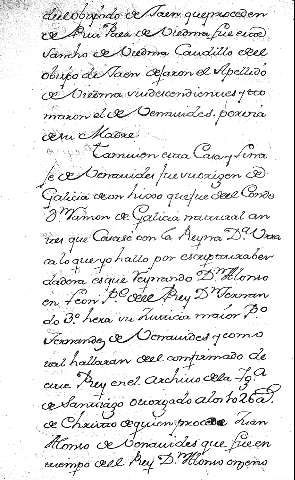 del obispado de Jaen, que proceden
de Rui Paez de Viedma, fue
Sancho de Viedma Caudillo del
obispo de Jaen dejaron el Apellido
de Viedma sus descendientes y to
maron el de Venauides, por
de su Madre.
Tamuien esta Casa y Lina
je de Venauides fue su origen de
Galicia de un hixo que fue del Conde
Dn. Ramon de Galicia natural an
tes que Casase con la Reyna Da. Vrra
ca lo que yo hallo por escriptura ber
dadera es que Reynando Dn. Alonso
en del Rey Dn. Fernan
do 3o. hera su Justicia maior Po.
Fernandez de Venauides y como
tal hallaran del confirmado de
este Rey en el Archivo de la Yga.
de Santiago otorgado año 1026 as.
de Christo de quien procede Juan
Alonso de Venauides que fue en
tiempo del Rey Dn. Alonso onzeno